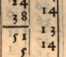 14
38 13
51 14
5 14